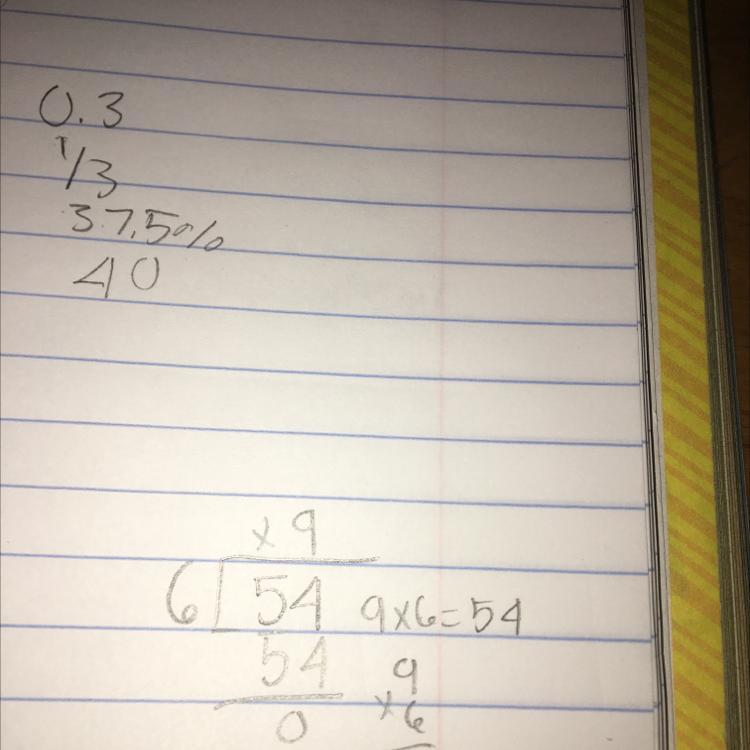 0.3
1/3
37.5%
40
x 9
6 54 9x6=54
54
9
0 x6